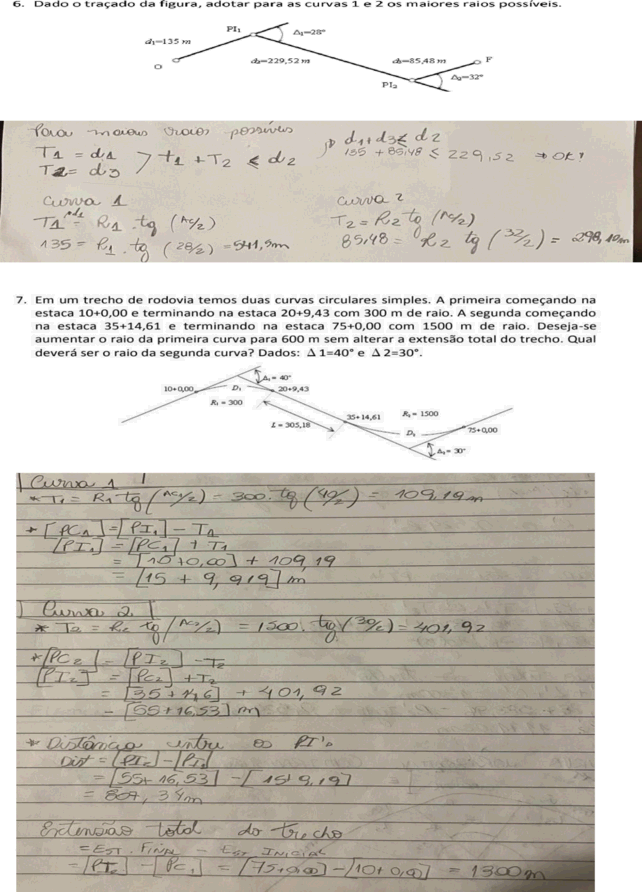 6. Dado o traçado da figura, adotar para as curvas 1 e 2 os maiores raios possíveis.
PI₁
Δ₁=28°
d₁=135 m
O
d₂=229,52 m
d₃=85,48 m
F
PI₂
Δ₂=32°
Para maiores raios possíveis
T1 = d1
T2 = d3 > t1 + T2 ≤ d2
d1+d3 ≤ d2
135 + 85,48 ≤ 229,52 → OK!
Curva 1
T1 = R1 . tg (AC/2)
135 = R1 . tg (28/2) = 541,5m
Curva 2
T2 = R2 tg (AC/2)
85,48 = R2 tg (32/2) = 298,10m
7. Em um trecho de rodovia temos duas curvas circulares simples. A primeira começando na
estaca 10+0,00 e terminando na estaca 20+9,43 com 300 m de raio. A segunda começando
na estaca 35+14,61 e terminando na estaca 75+0,00 com 1500 m de raio. Deseja-se
aumentar o raio da primeira curva para 600 m sem alterar a extensão total do trecho. Qual
deverá ser o raio da segunda curva? Dados: Δ1=40° e Δ2=30°.
Δ₁ = 40°
10+0,00
D₁
20+9,43
R₁ = 300
L = 305,18
35+14,61
R₂ = 1500
D₂
75+0,00
Δ₂ = 30°
Curva 1
* T1 = R1 tg (AC1/2) = 300. tg (40/2) = 109,19m
* [PC1] = [PI1] - T1
[PI1] = [PC1] + T1
= [10+0,00] + 109,19
= [15 + 9,919] m
Curva 2
* T2 = R2 tg (AC2/2) = 1500. tg (30/2) = 401,92
* [PC2] = [PI2] - T2
[PI2] = [PC2] + T2
= [35+14,6] + 401,92
= [55+16,53] m
* Distância entre os PI's
Dist = [PI2] - [PI1]
= [55+16,53] - [15+9,19]
= 807,34m
Extensão total do trecho
= Est. Final - Est Inicial
= [PT2] - [PC1] = [75+0,00] - [10+0,00] = 1300m